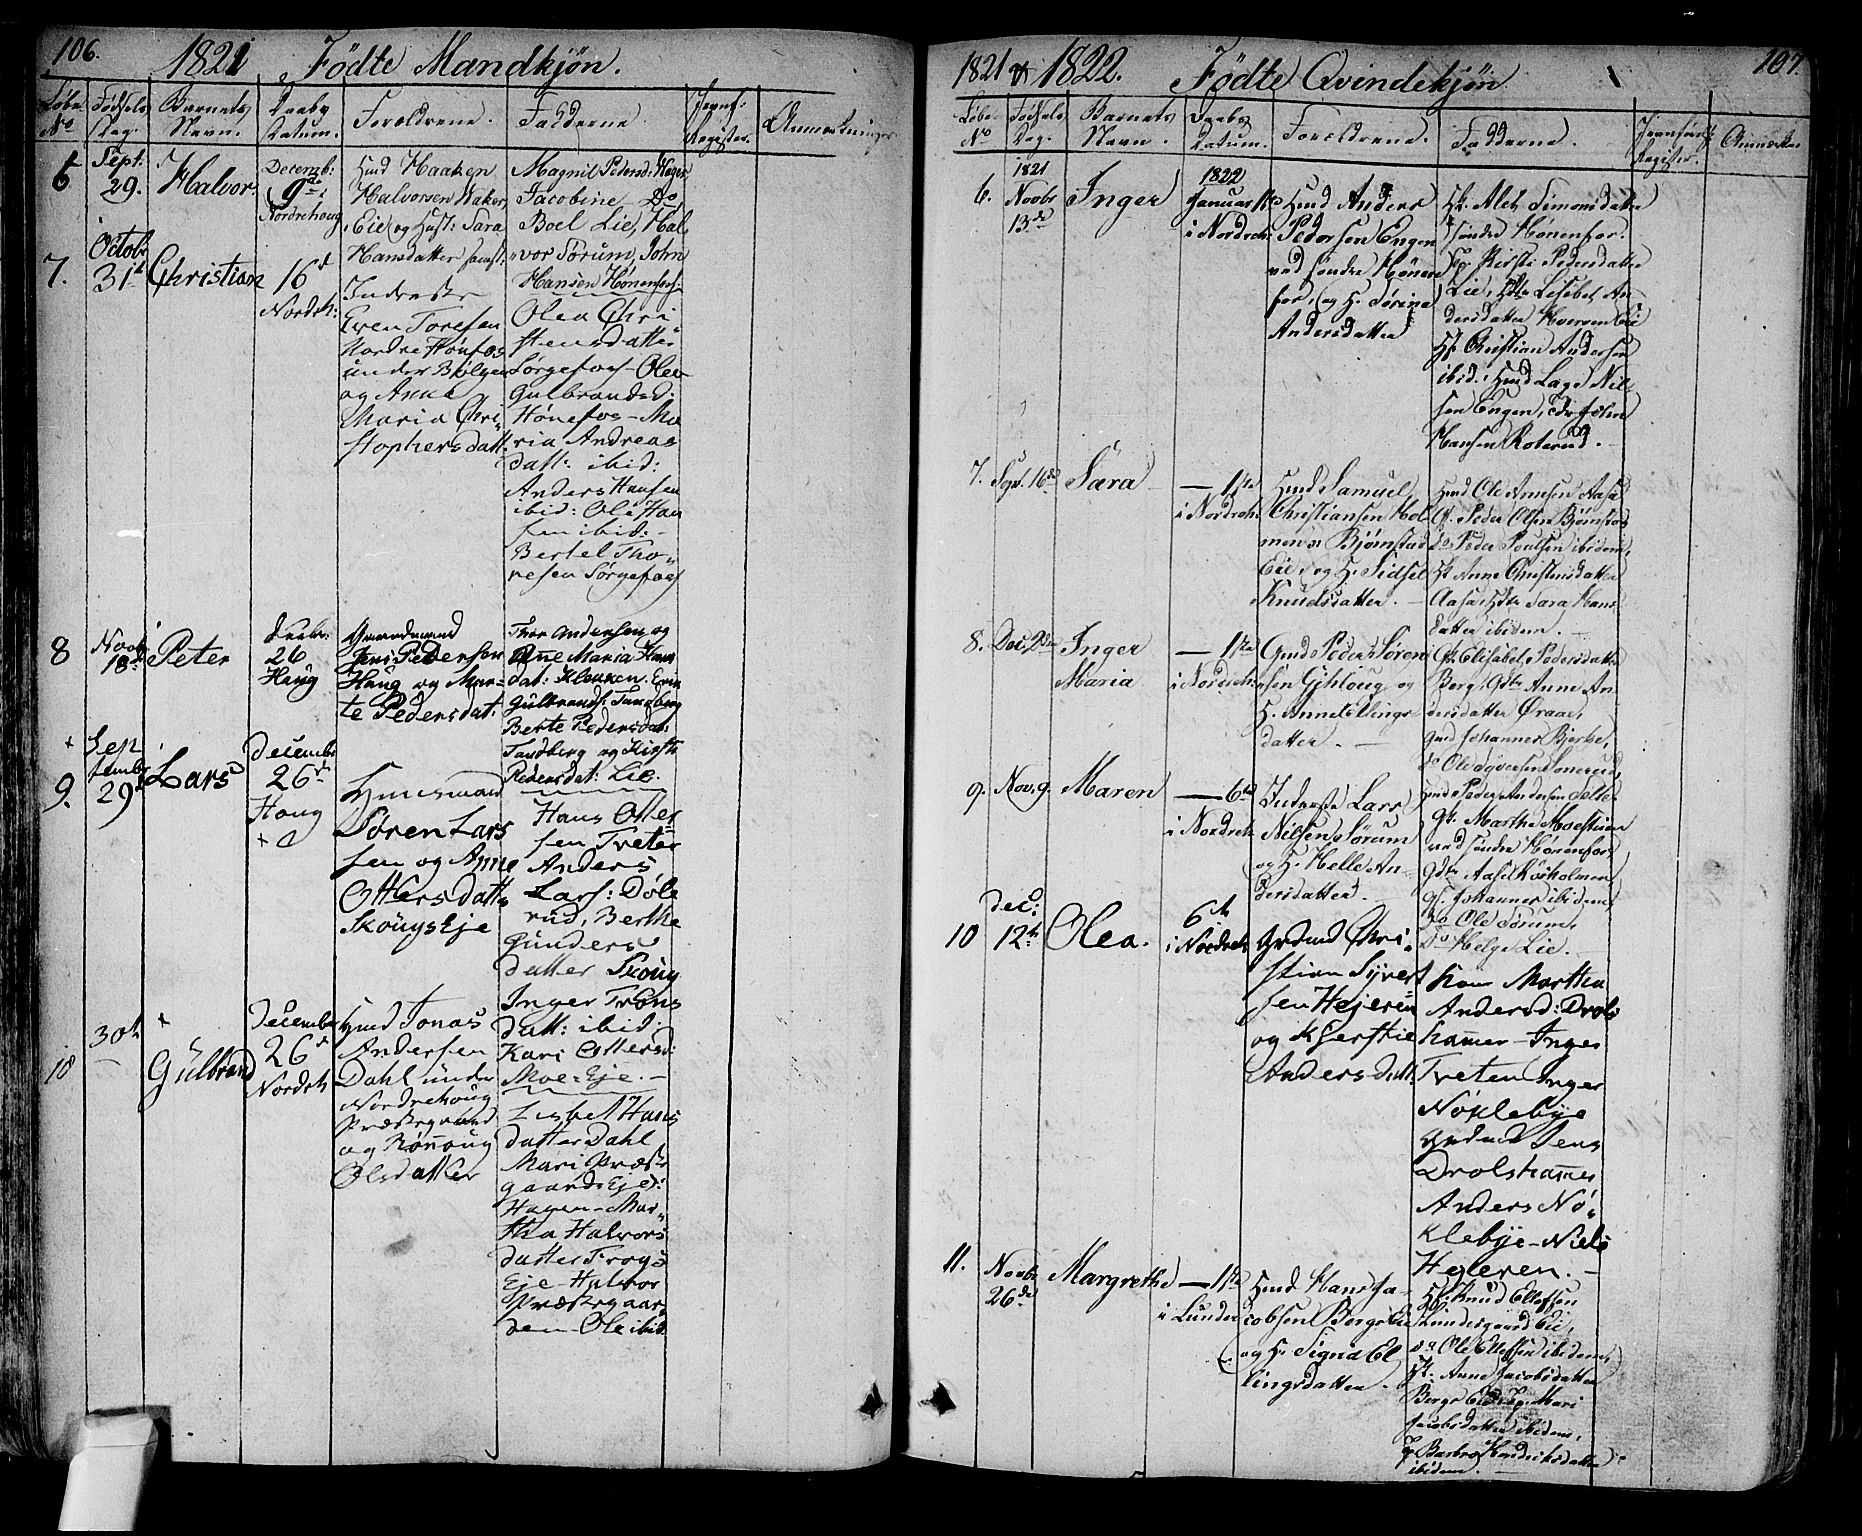 106.
1821
Fødte Mandkjøn.
Løbe No
Fødsels Dag.
Barnets Navn.
Daabs Datum.
Forældrene.
Fadderne
Jevnf: Register.
Anmærkninger
6
Sept: 29.
Halvor
Decemb: 9de
Nordrehoug
Hmd Haaken
Halvorsen Haker
Eie og Hust: Sara
Hansdatter
Magnil Pedersd: Hager
Jacobine Do
Boel Lie, Hal
vor Sørum, John
Hansen Hønenfos
7.
Octobr 31
Christian
16
Nordreh:
Inderste
Even Toresen
Nordre Hønfos
under
og Anne
Maria Chri
stophersdatt.
Olea Chri
stensdatter
Sørgefos - Olea
Gulbrandsd:
Hønefos - Ma
ria Andreas
datt: ibid:
Anders Hansen
ibid: Ole Han
sen ibid: -
Bertel Tho
resen Sørgefoss
8
Novbr 18
Peter
26
Haug
Gaardmand
Jens Pedersen
Haug og Mar-
te Pedersdat:
Thor Andersen og
Ane Maria Hans
dat: Klekken. Even
Gulbrands: Tandberg
Berte Pedersdat:
Tandberg og Kirsti
Pedersdat: Lie.
9.
Sep
tembr
29
Lars
Decembr
26
Houg
Huusmand
Søren Lars
sen og Anne
Ottersdatt
Skougs Eje
Hans Otter
sen Tveter
Anders
Lars: Døle
rud, Berthe
Gunders
datter Skoug
Inger Trons
datt: ibid:
Kari Ottersd:
Moe-Eje. -
10
30
Gulbrand
December
26
Nordreh
Hmd Jonas
Andersen
Dahl under
Nordrehoug
Præstegaard
og Rønnoug
Olsdatter
Lisbet Hans
datter Dahl
Mari Præste
gaards Eje:
Hagen - Mar
tha Halvors
datter Trogs
Eje - Halvor
Præstegaar
den - Ole ibid.
1821 & 1822.
Fødte Qvindekjøn
107.
Løbe No
Fødsels Dag.
Barnets Navn.
Daabs Datum.
Forældrene.
Fadderne.
Jevnfør: Register.
Anmærkn
6.
1821
Novbr
13de
Inger
1822
Januar 1ste
i Nordreh:
Hmd Anders
Pedersen Engen
ved søndre Hønen
fos, og H. Sørine
Andersdatter
Hk. Aleth Simonsdatter
søndre Hönenfos.
Pg. Kirsti Pedersdatter
Lie, Hdtr Lisabet An
dersdatter Hverven Eie
Hk. Christian Andersen
ibid., Hmd Lage Niel
sen Engen, John
Hansen Roterud. -
7.
Sept. 16de
Sara
- 1ste
i Nordreh:
Hmd Samuel
Christiansen Hol
men Bjørnstad
Eie, og H. Sidsel
Knudsdatter. -
Hmd Ole Arnesen Aasa
Peder Olsen Bjørnstad
do Peder Poulsen ibidem,
Hk Anne Christensdatter
Aasa, Hdtr Sara Hans
datter ibidem. -
8.
Dec. 2den
Inger
Maria
- 1ste
i Nordreh:
Gmd Peder Søren
sen Gjhloug og
H. Anne Ellings
datter. -
Gk. Elisabet Pedersdatter
Berg, Gdtr Anne An
dersdatter Øraae,
Gmd Johannes Bjerke,
do Ole Syversen Sonerud,
9.
Nov. 9.
Maren
- 6te
i Nordreh:
Inderste Lars
Nilsen Sørum
og H. Helle An-
dersdatter.
Hmd Peder Andersen Felte
Gk. Marthe Moestuen
ved søndre Hönenfos,
Gdtr Aase Risholmen,
Johannes ibidem,
do Ole Sørum,
do Helge Lie. -
10
Dec: 12
Olea.
6te
i Nordreh
Grdmd Chri
stian Syvert
sen Hejeren
og Kjerstie
Andersdatt:
Kone Martha
Andersd: Drols
hamer - Inger
Tveten Inger
Nøklebye
Grdmd Jens
Drolshamer
Anders Nø-
klebye - Niels
Hejeren. -
11.
Novbr
26de
Margrethe
- 1ste
i Lunder
Hmd Hans Ja-
cobsen Bergs Eie
og H. Signe El
lingsdatter.
Knud Ellefsen
Lundesgaard Eie,
do Ole Ellefsen ibidem,
Hk. Anne Jacobsdatter
Bergs Eie, Pg. Mari
Jacobsdatter ibidem,
Barbro Hendrichsdatter
ibidem. -